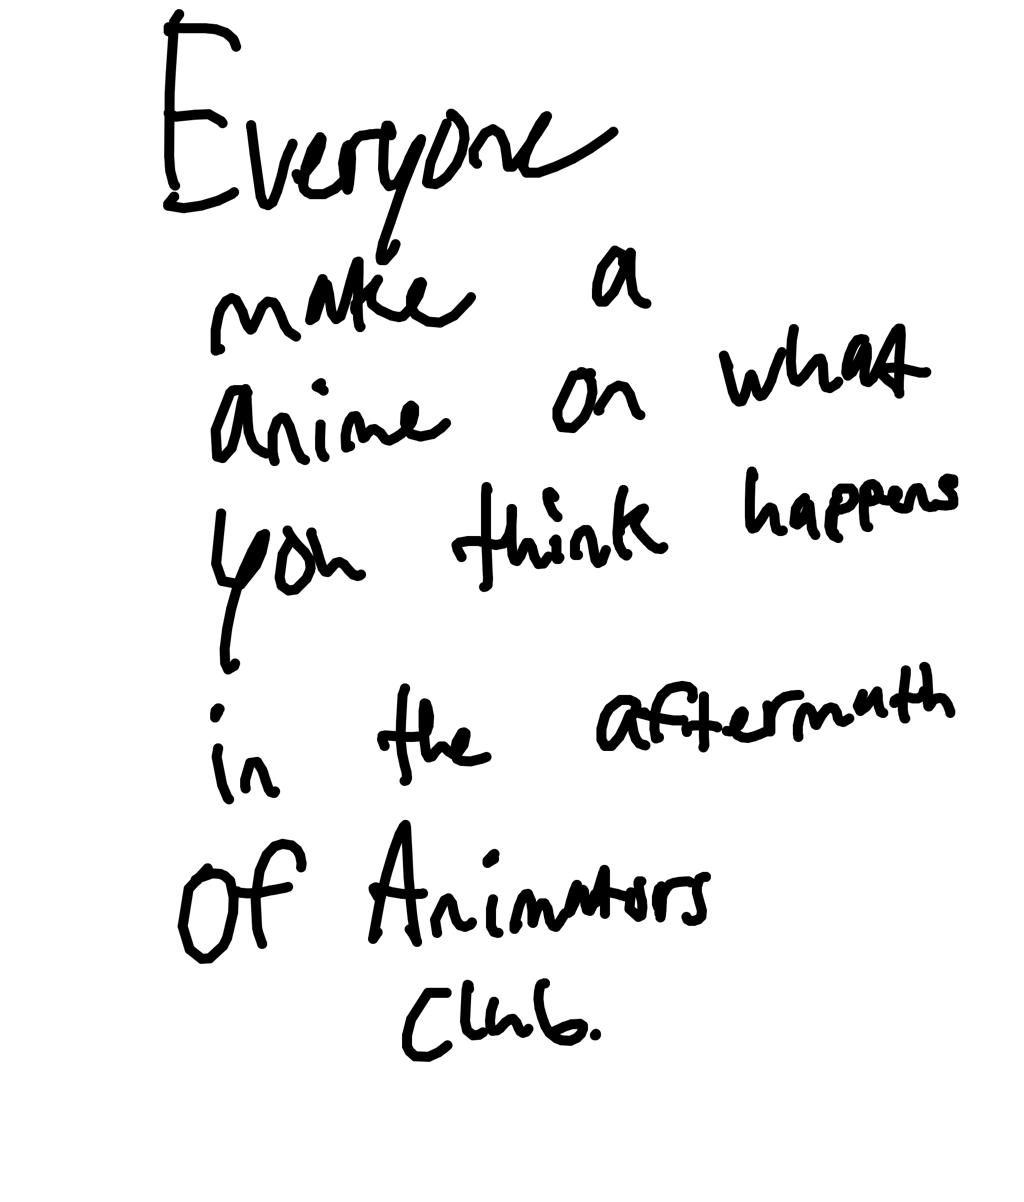 Everyone
make a
anime on what
you think happens
in the aftermath
Of Animators
Club.